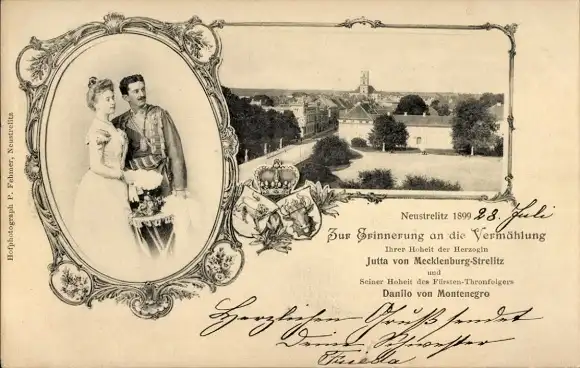 Hofphotograph P. Fehmer, Neustrelitz
Neustrelitz 1899 23. Juli
Zur Erinnerung an die Vermählung
Ihrer Hoheit der Herzogin
Jutta von Mecklenburg-Strelitz
und
Seiner Hoheit des Fürsten-Thronfolgers
Danilo von Montenegro
Herzlichen Gruß sendet
Deine Schwester
Frieda